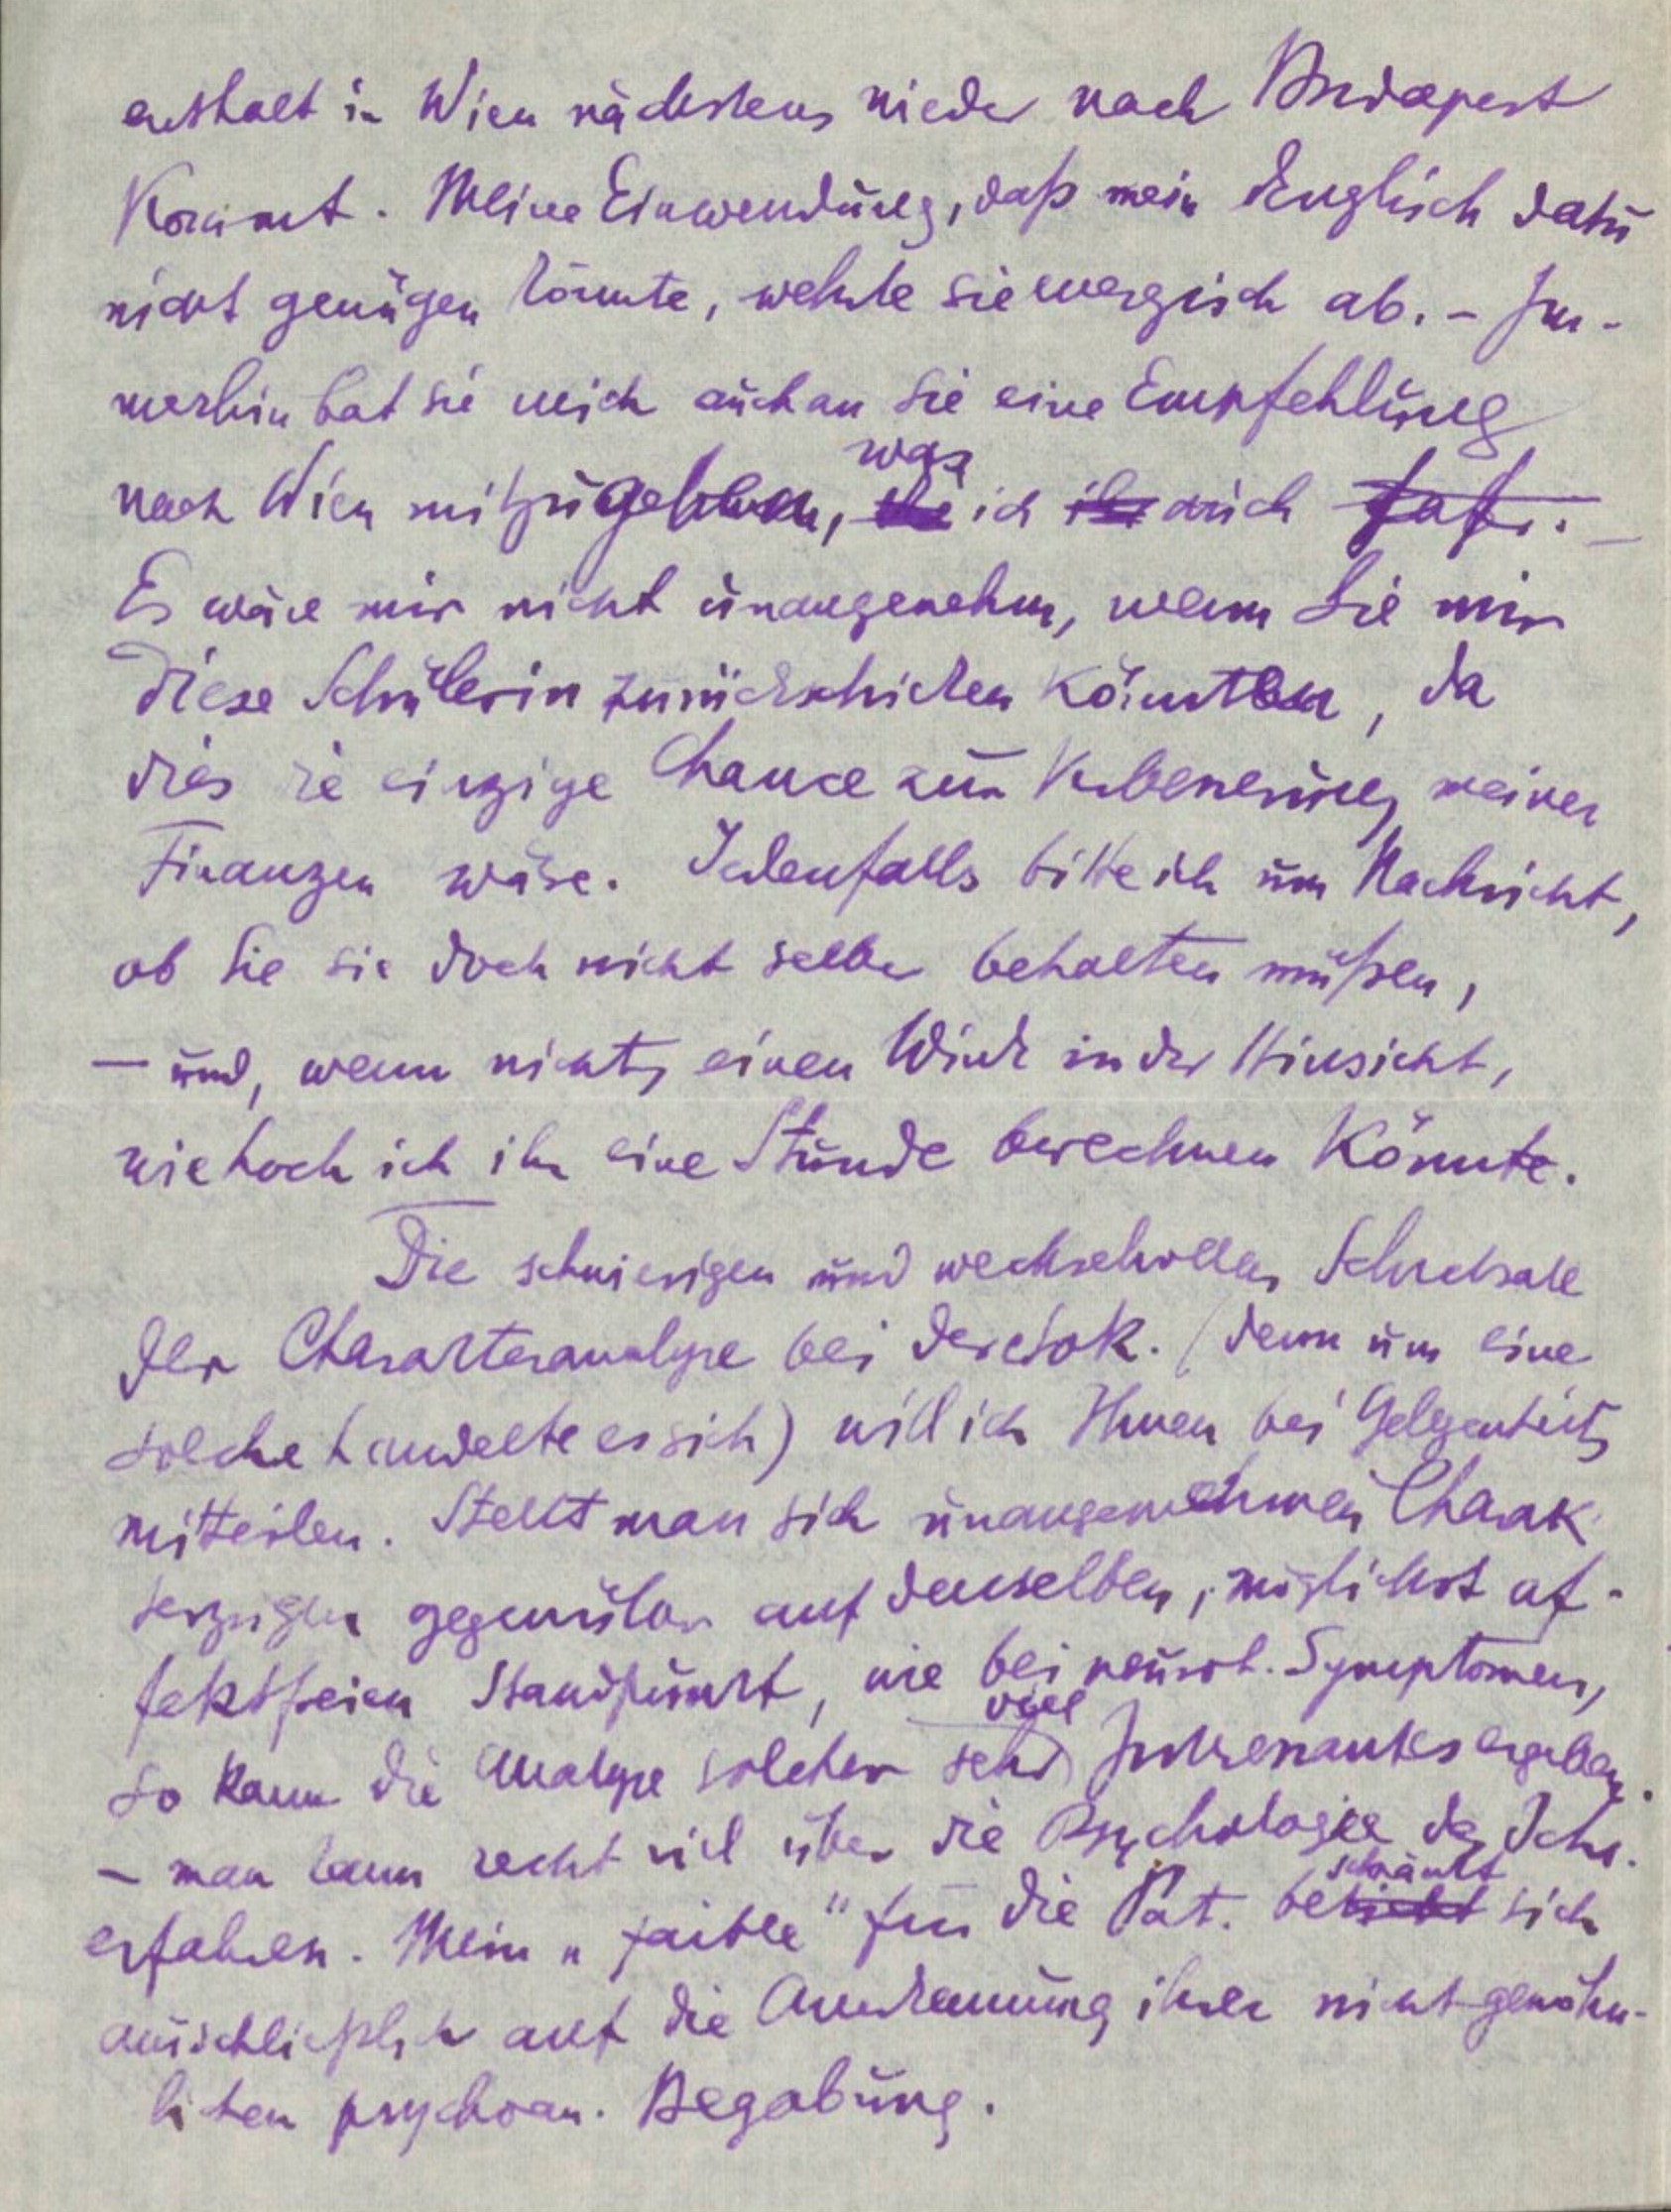 enthalt in Wien nächstens wieder nach Budapest
kommt. Meine Einwendung, daß mein Englisch dazu
nicht genügen könnte, wehrte sie energisch ab. – Im-
merhin bat sie mich auch an Sie eine Empfehlung
nach Wien mitzugeben, was ich auch tat. –
Es wäre mir nicht unangenehm, wenn Sie mir
diese Schülerin zurückschicken könnten, da
dies die einzige Chance zur Verbesserung meiner
Finanzen wäre. Jedenfalls bitte ich um Nachricht,
ob Sie sie doch nicht selber behalten müßen,
– und, wenn nicht, einen Wink in der Hinsicht,
wie hoch ich ihr eine Stunde berechnen könnte.
Die schwierigen und wechselvollen Schicksale
der Charakteranalyse bei der Sok. (denn um eine
solche handelte es sich) will ich Ihnen bei Gelegenheit
mitteilen. Stellt man sich unangenehmen Charak
terzügen gegenüber auf denselben, möglichst af-
fektfreien Standpunkt, wie bei neurot. Symptomen,
so kann die Analyse solcher sehr viel Interessantes ergeben.
– man kann recht viel über die Psychologie des Ichs.
erfahren. Mein „faible" für die Pat. beschränkt sich
ausschließlich auf die Anerkennung ihrer nicht gewöhn-
lichen psychoan. Begabung.